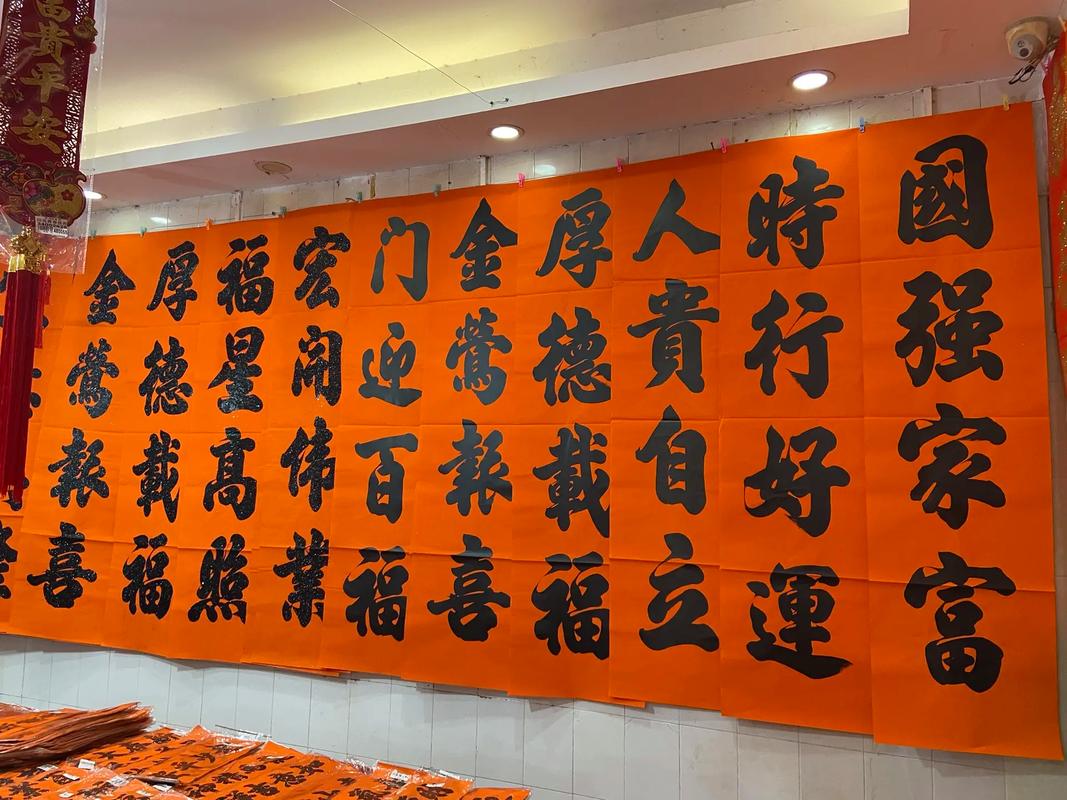 國强家富
時行好運
人貴自立
厚德載福
金鶯報喜
门迎百福
宏開偉業
福星髙照
厚德載福
金鶯報喜
富貴平安